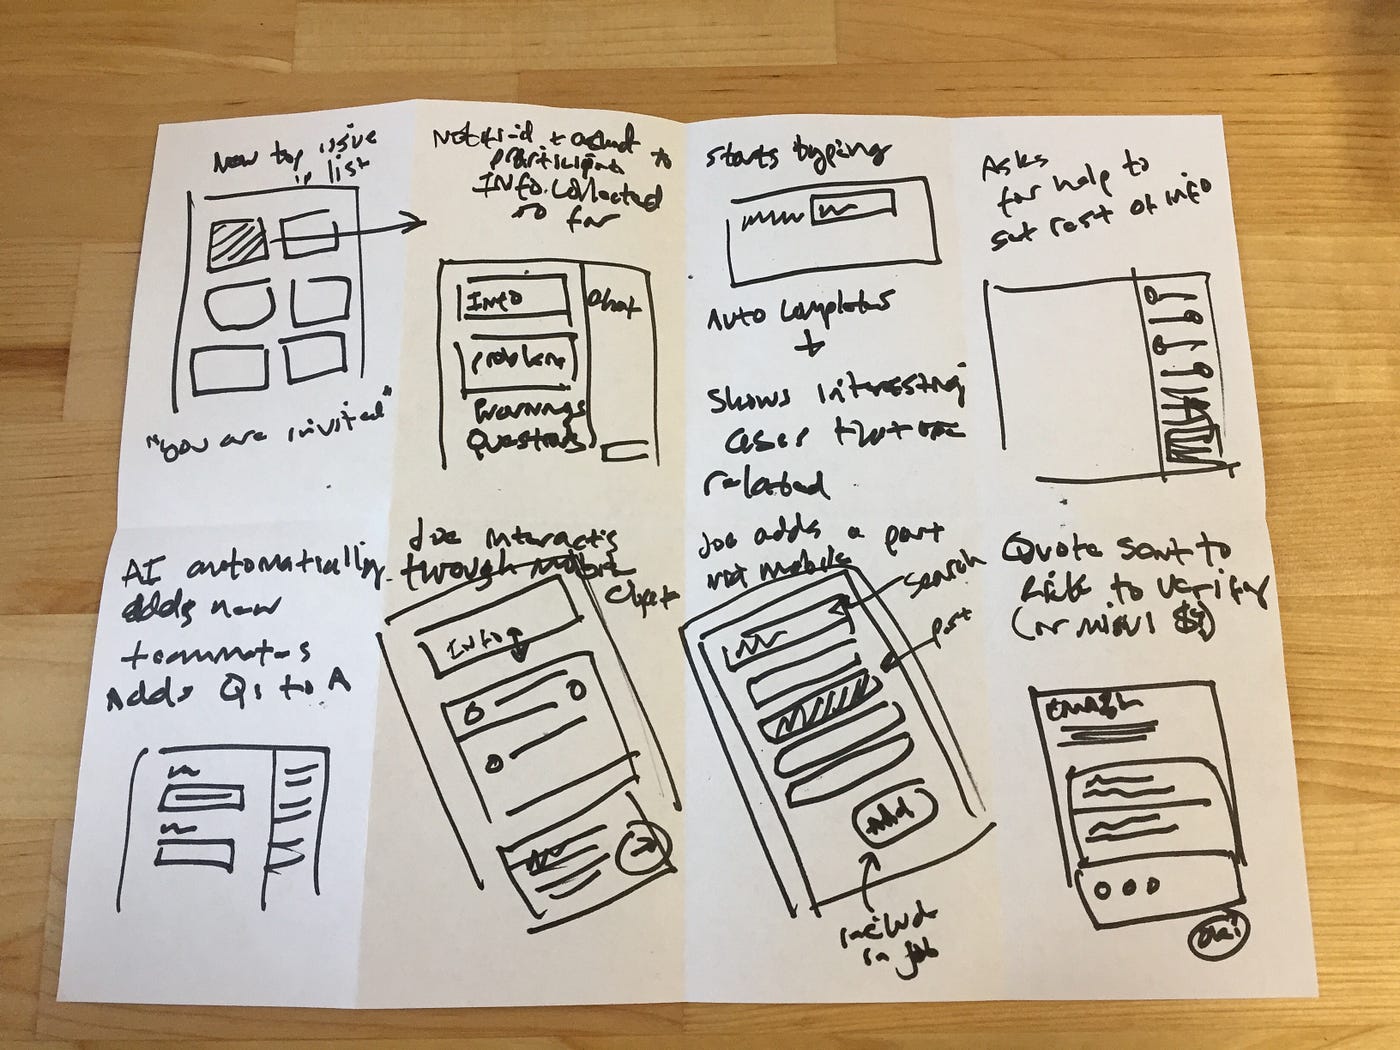 New top issue
in list
"You are invited"
participant to
Info collected
so far
Info
Chat
Problem
Warnings
Questions
Starts typing
Auto completes
+
Shows interesting
cases that are
related
Asks
for help to
get rest of info
AI automatically
adds new
teammates
Adds Qs to A
Joe interacts
through mobile
chat
Info
Joe adds a part
via mobile
search
part
Add
include
in job
Quote sent to
to verify